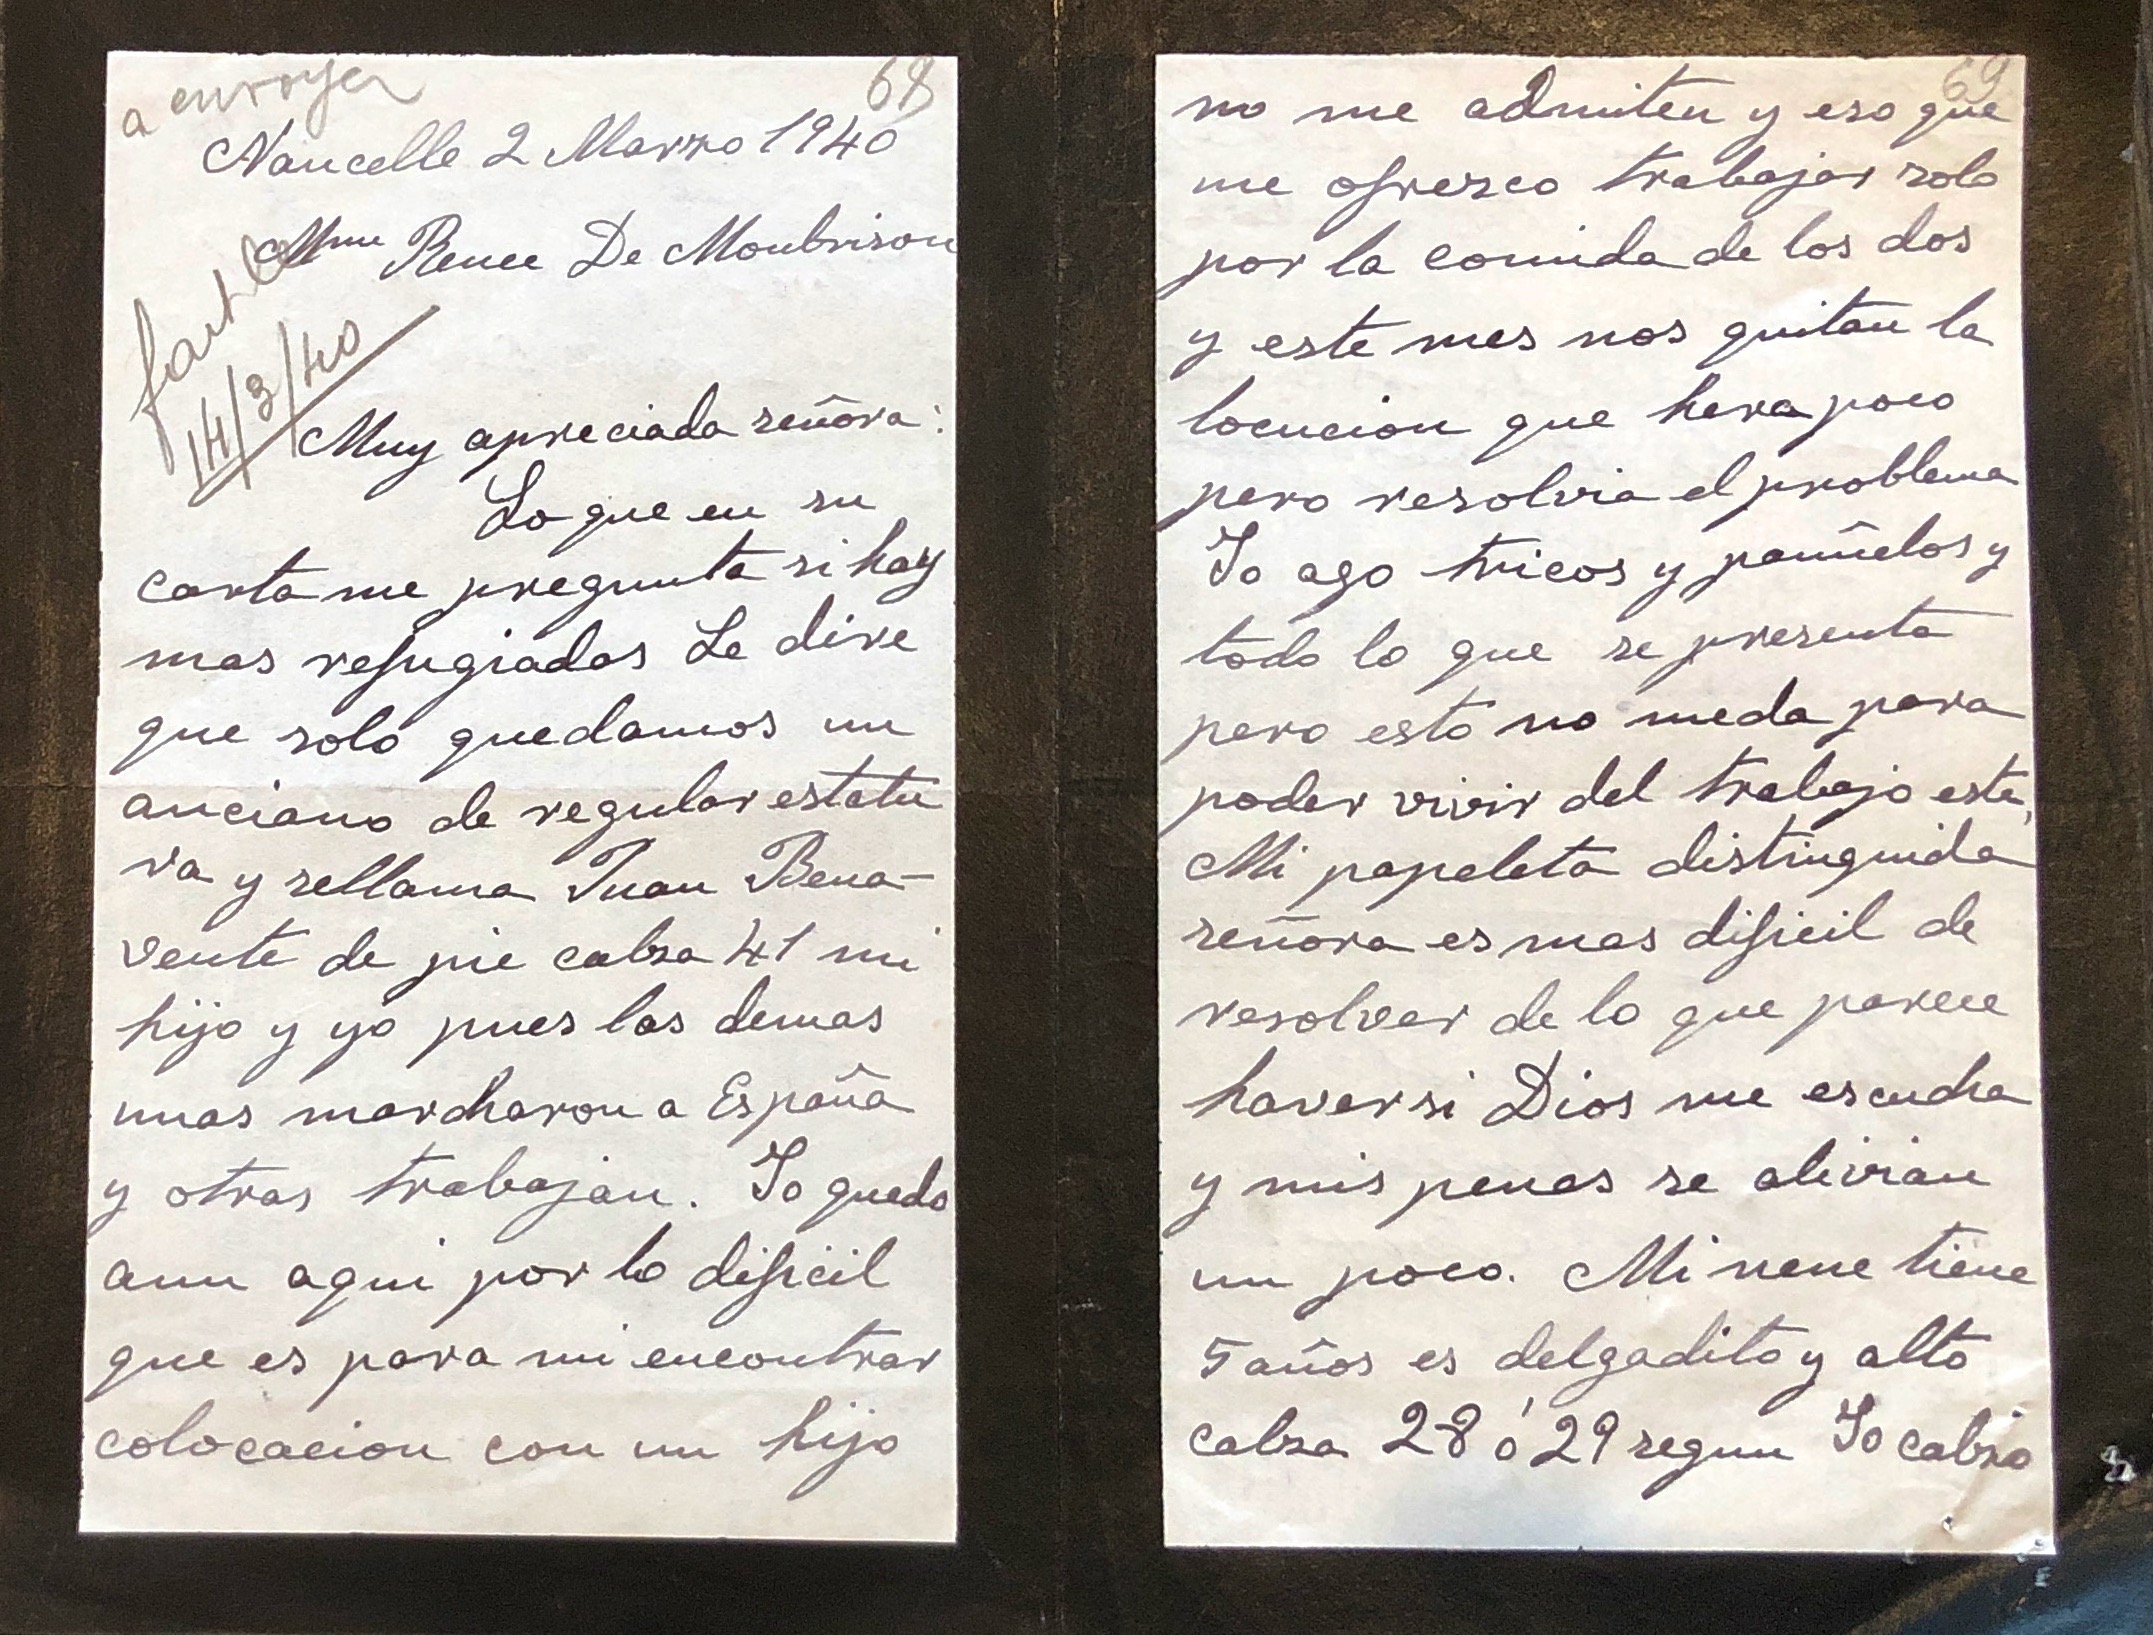 a envoyer
68
Naucelle 2 Marzo 1940
Mme Renee De Monbrison
14/3/40
Muy apreciada señora:
Lo que en su
carta me pregunta si hay
mas refugiados Le dire
que solo quedamos un
anciano de regular estatu
ra y sellama Juan Bena-
vente de pie calza 41 mi
hijo y yo pues las demas
unas marcharon a España
y otras trabajan. Yo quedo
aun aqui por lo dificil
que es para mi encontrar
colocacion con un hijo
69
no me admiten y eso que
me ofrezco trabajar solo
por la comida de los dos
y este mes nos quitan la
locucion que hera poco
pero resolvia el problema
Yo ago tricos y pañuelos y
todo lo que se presenta
pero esto no meda para
poder vivir del trabajo este,
Mi papeleta distinguida
señora es mas dificil de
resolver de lo que parece
haversi Dios me escucha
y mis penas se alivian
un poco. Mi nene tiene
5 años es delgadito y alto
calza 28 ó 29 segun Yo calzo